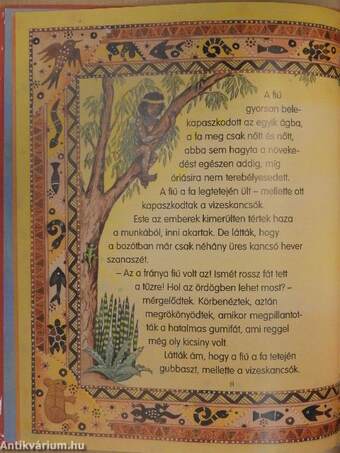 A fiú
gyorsan bele-
kapaszkodott az egyik ágba,
a fa meg csak nőtt és nőtt,
abba sem hagyta a növeke-
dést egészen addig, míg
óriásira nem terebélyesedett.
A fiú a fa legtetején ült – mellette ott
kapaszkodtak a vizeskancsók.
Este az emberek kimerülten tértek haza
a munkából, inni akartak. De látták, hogy
a bozótban már csak néhány üres kancsó hever
szanaszét.
– Az a fránya fiú volt az! Ismét rossz fát tett
a tűzre! Hol az ördögben lehet most? –
mérgelődtek. Körbenéztek, aztán
megrökönyödtek, amikor megpillantot-
ták a hatalmas gumifát, ami reggel
még oly kicsiny volt.
Látták ám, hogy a fiú a fa tetején
gubbaszt, mellette a vizeskancsók.
Antikvárium.hu